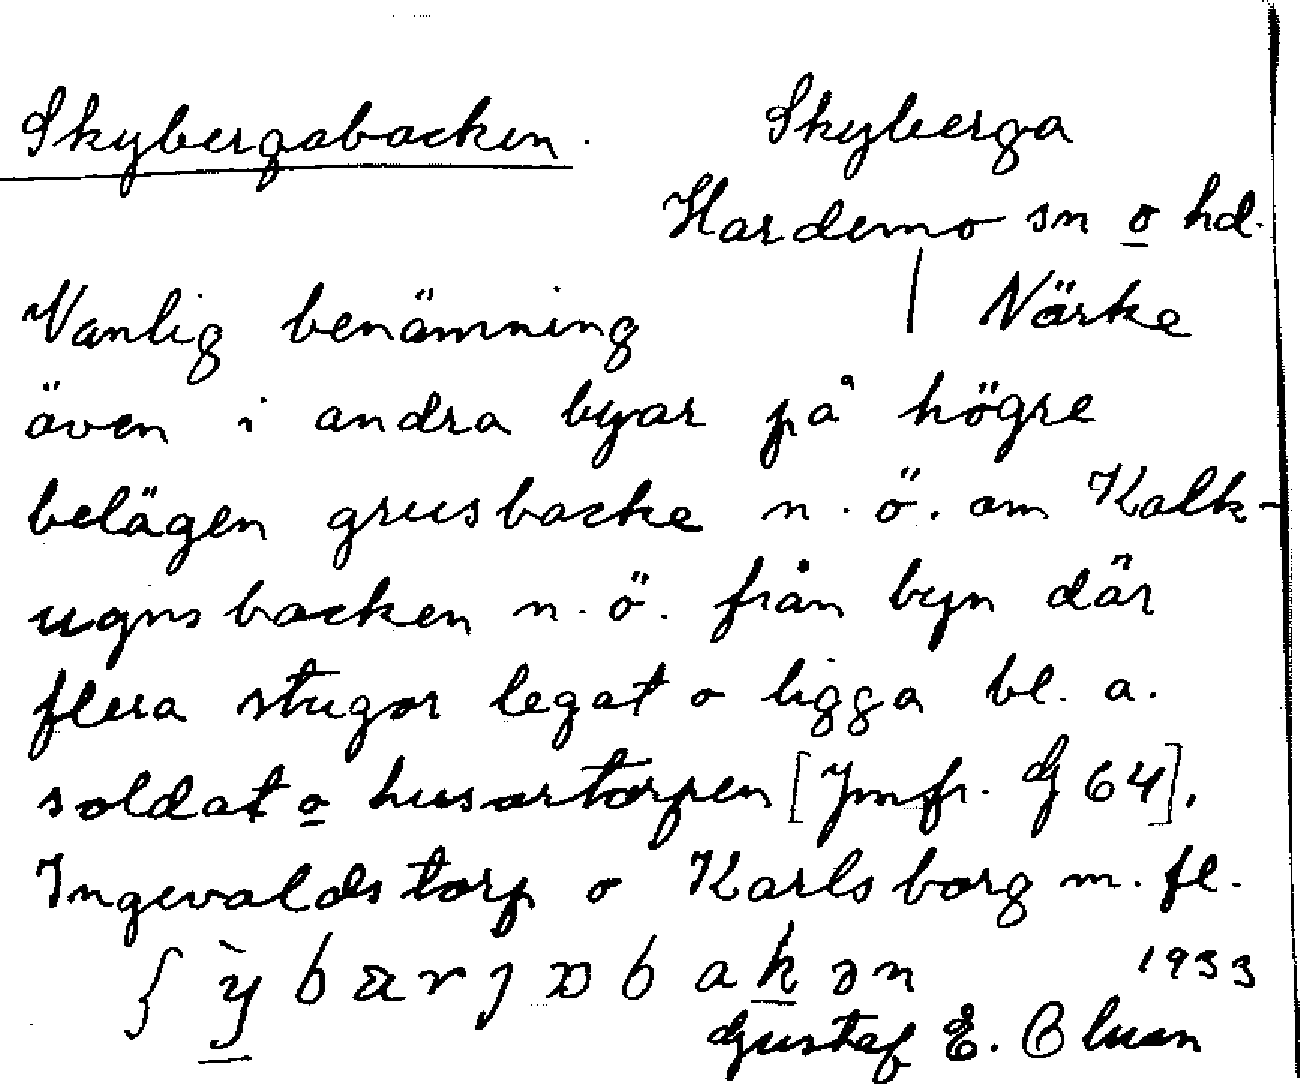 Skybergabacken. Skyberga
Hardemo sn o hd.
Närke
Vanlig benämning
även i andra byar på högre
belägen grusbacke n.ö. om Kalk-
ugnsbacken n.ö. från byn där
flera stugor legat o ligga bl. a.
soldat o husartorpen [Jmfr. G 64].
Ingevaldstorp o Karlsborg m. fl.
1933
Gustaf E.